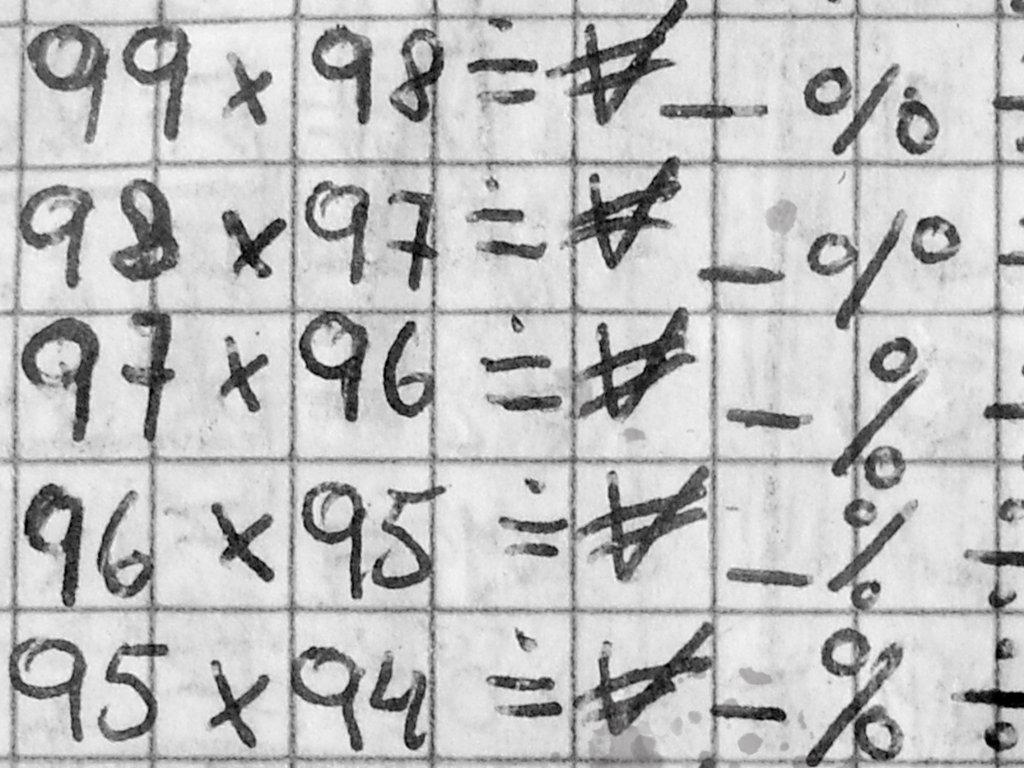 99 × 98 ≐ ∀ - % ÷
98 × 97 ≐ ∀ - % ÷
97 × 96 ≐ ∀ - % ÷
96 × 95 ≐ ∀ - % ÷
95 × 94 ≐ ∀ - % ÷